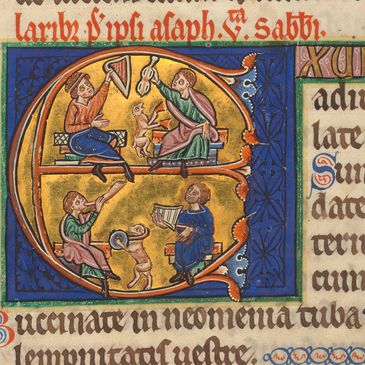 laribꝰ pˢ ipsi asaph. V.ᵗᵃ Sabbi.
EXUL
adiu
late
Sum
date
teriu
cum
Buccinate in neomenia tuba
lempnitatis uestre.